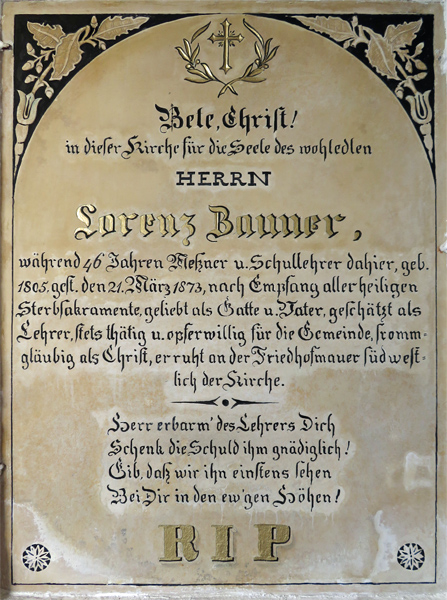 Bete, Christ!
in dieser Kirche für die Seele des wohledlen
HERRN
Lorenz Bauner,
während 46 Jahren Meßner u. Schullehrer dahier, geb.
1805, gest. den 21. März 1873, nach Empfang aller heiligen
Sterbsakramente, geliebt als Gatte u. Vater, geschätzt als
Lehrer, stets thätig u. opferwillig für die Gemeinde, fromm-
gläubig als Christ, er ruht an der Friedhofmauer südwest-
lich der Kirche.
Herr erbarm' des Lehrers Dich
Schenk die Schuld ihm gnädiglich!
Gib, daß wir ihn einstens sehen
Bei Dir in den ew'gen Höhen!
RIP